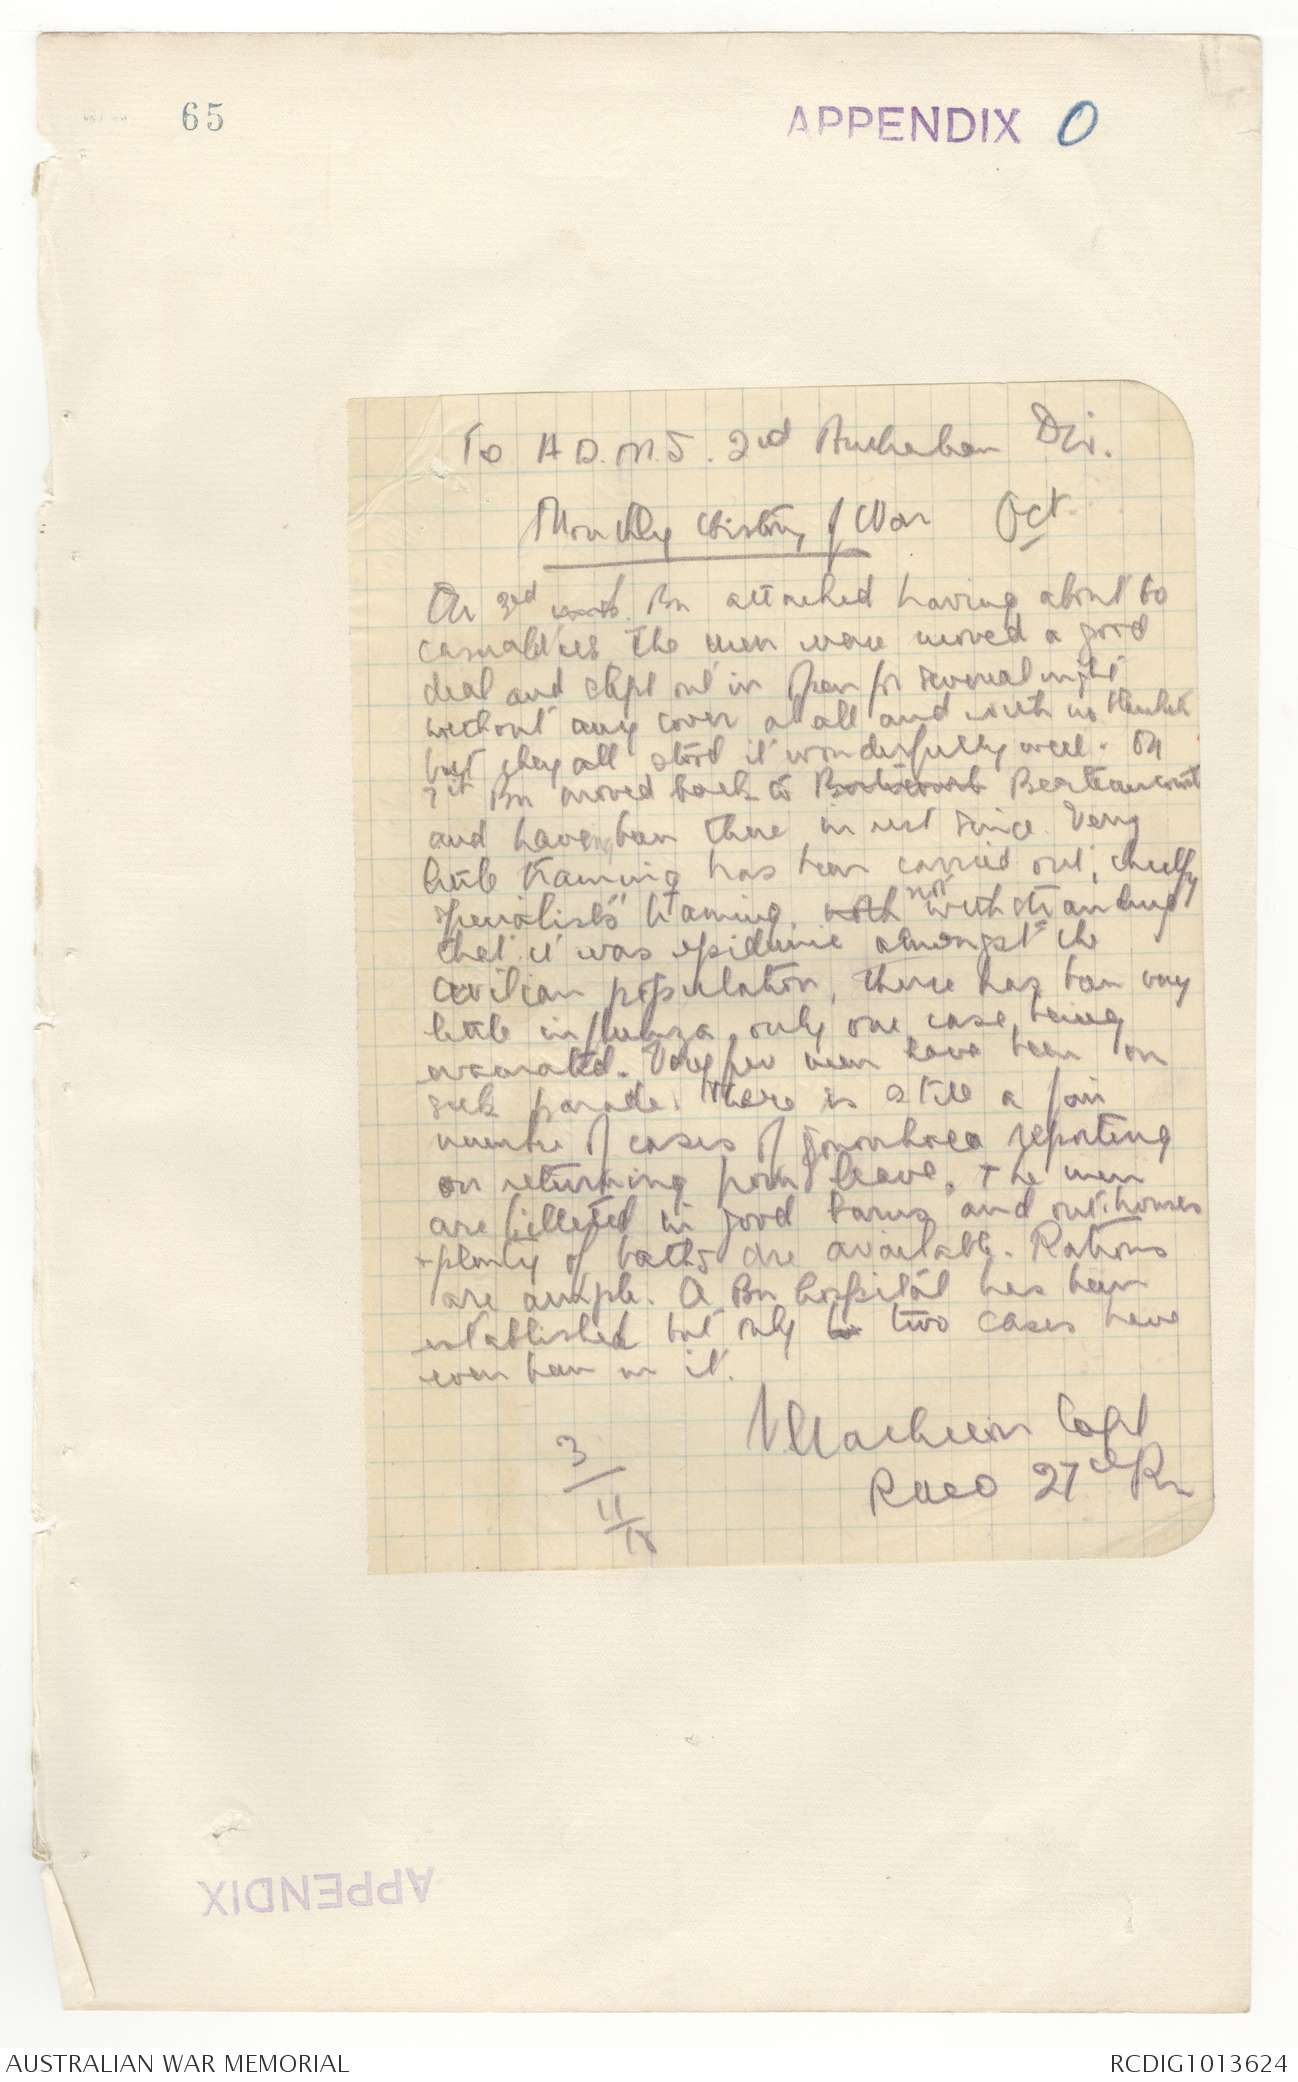 65
APPENDIX O
To A.D.M.S. 2nd Australian Div.
Monthly History of War Oct
On 3rd Bn attacked having about 60
casualties The men were moved a good
deal and slept out in open for several night
without any cover at all and with no
but they all stood it wonderfully well. On
7th Bn moved back to Berteaucourt
and have been there in rest since. Very
little training has been carried out, chiefly
specialists training, not withstanding
that it was epidemic amongst the
civilian population, there has been very
little influenza, only one case being
evacuated. Very few men have been on
sick parade. There is still a fair
number of cases of gonorrhoea reporting
on returning from leave. The men
are billeted in good barns and outhouses
+ plenty of baths are available. Rations
are ample. A Bn hospital has been
established but only two cases have
even been in it.
Capt
RMO 27th Bn
3/11/18
APPENDIX
AUSTRALIAN WAR MEMORIAL
RCDIG1013624